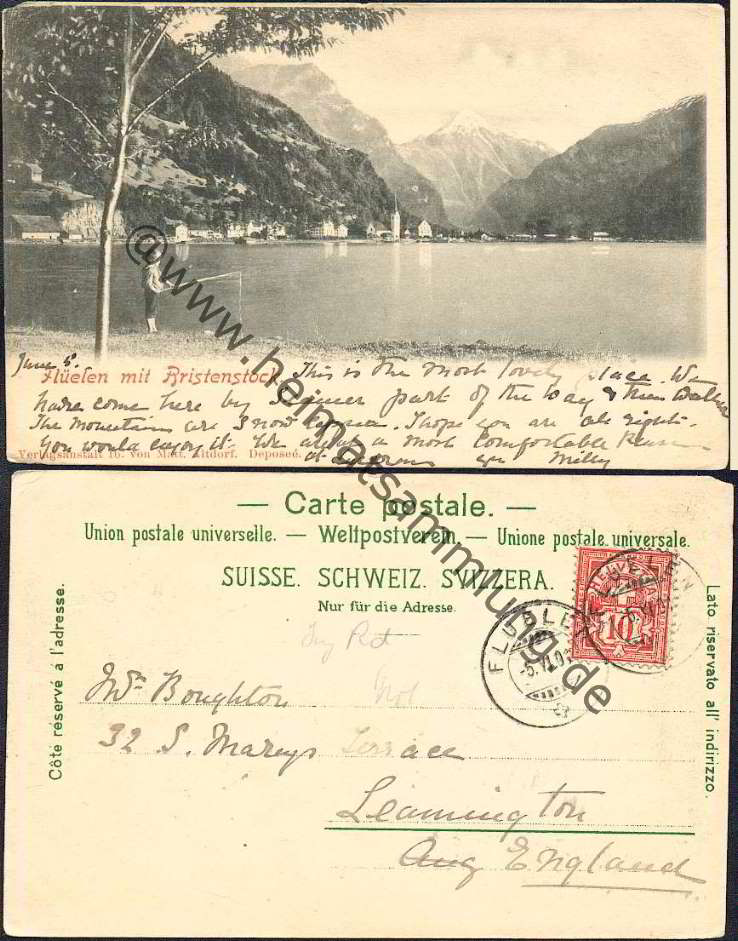 June 5.
Flüelen mit Bristenstock
This is the most lovely place. We
have come here by Steamer part of the way & then
The Mountains are Snow Capped. I hope you are all right.
You would enjoy it. We are a most Comfortable
Verlagsanstalt Th. von Matt, Altdorf. Deposeé.
at yrs Milly
@www.heimatsammlung.de
— Carte postale. —
Union postale universelle. — Weltpostverein. — Unione postale universale.
SUISSE. SCHWEIZ. SVIZZERA.
Nur für die Adresse.
Côté réservé à l'adresse.
Lato riservato all' indirizzo.
HELVETIA
10
FLÜELEN
-5.VI.0
Mrs Boughton
32 S. Marys Terrace
Leamington
Ang England